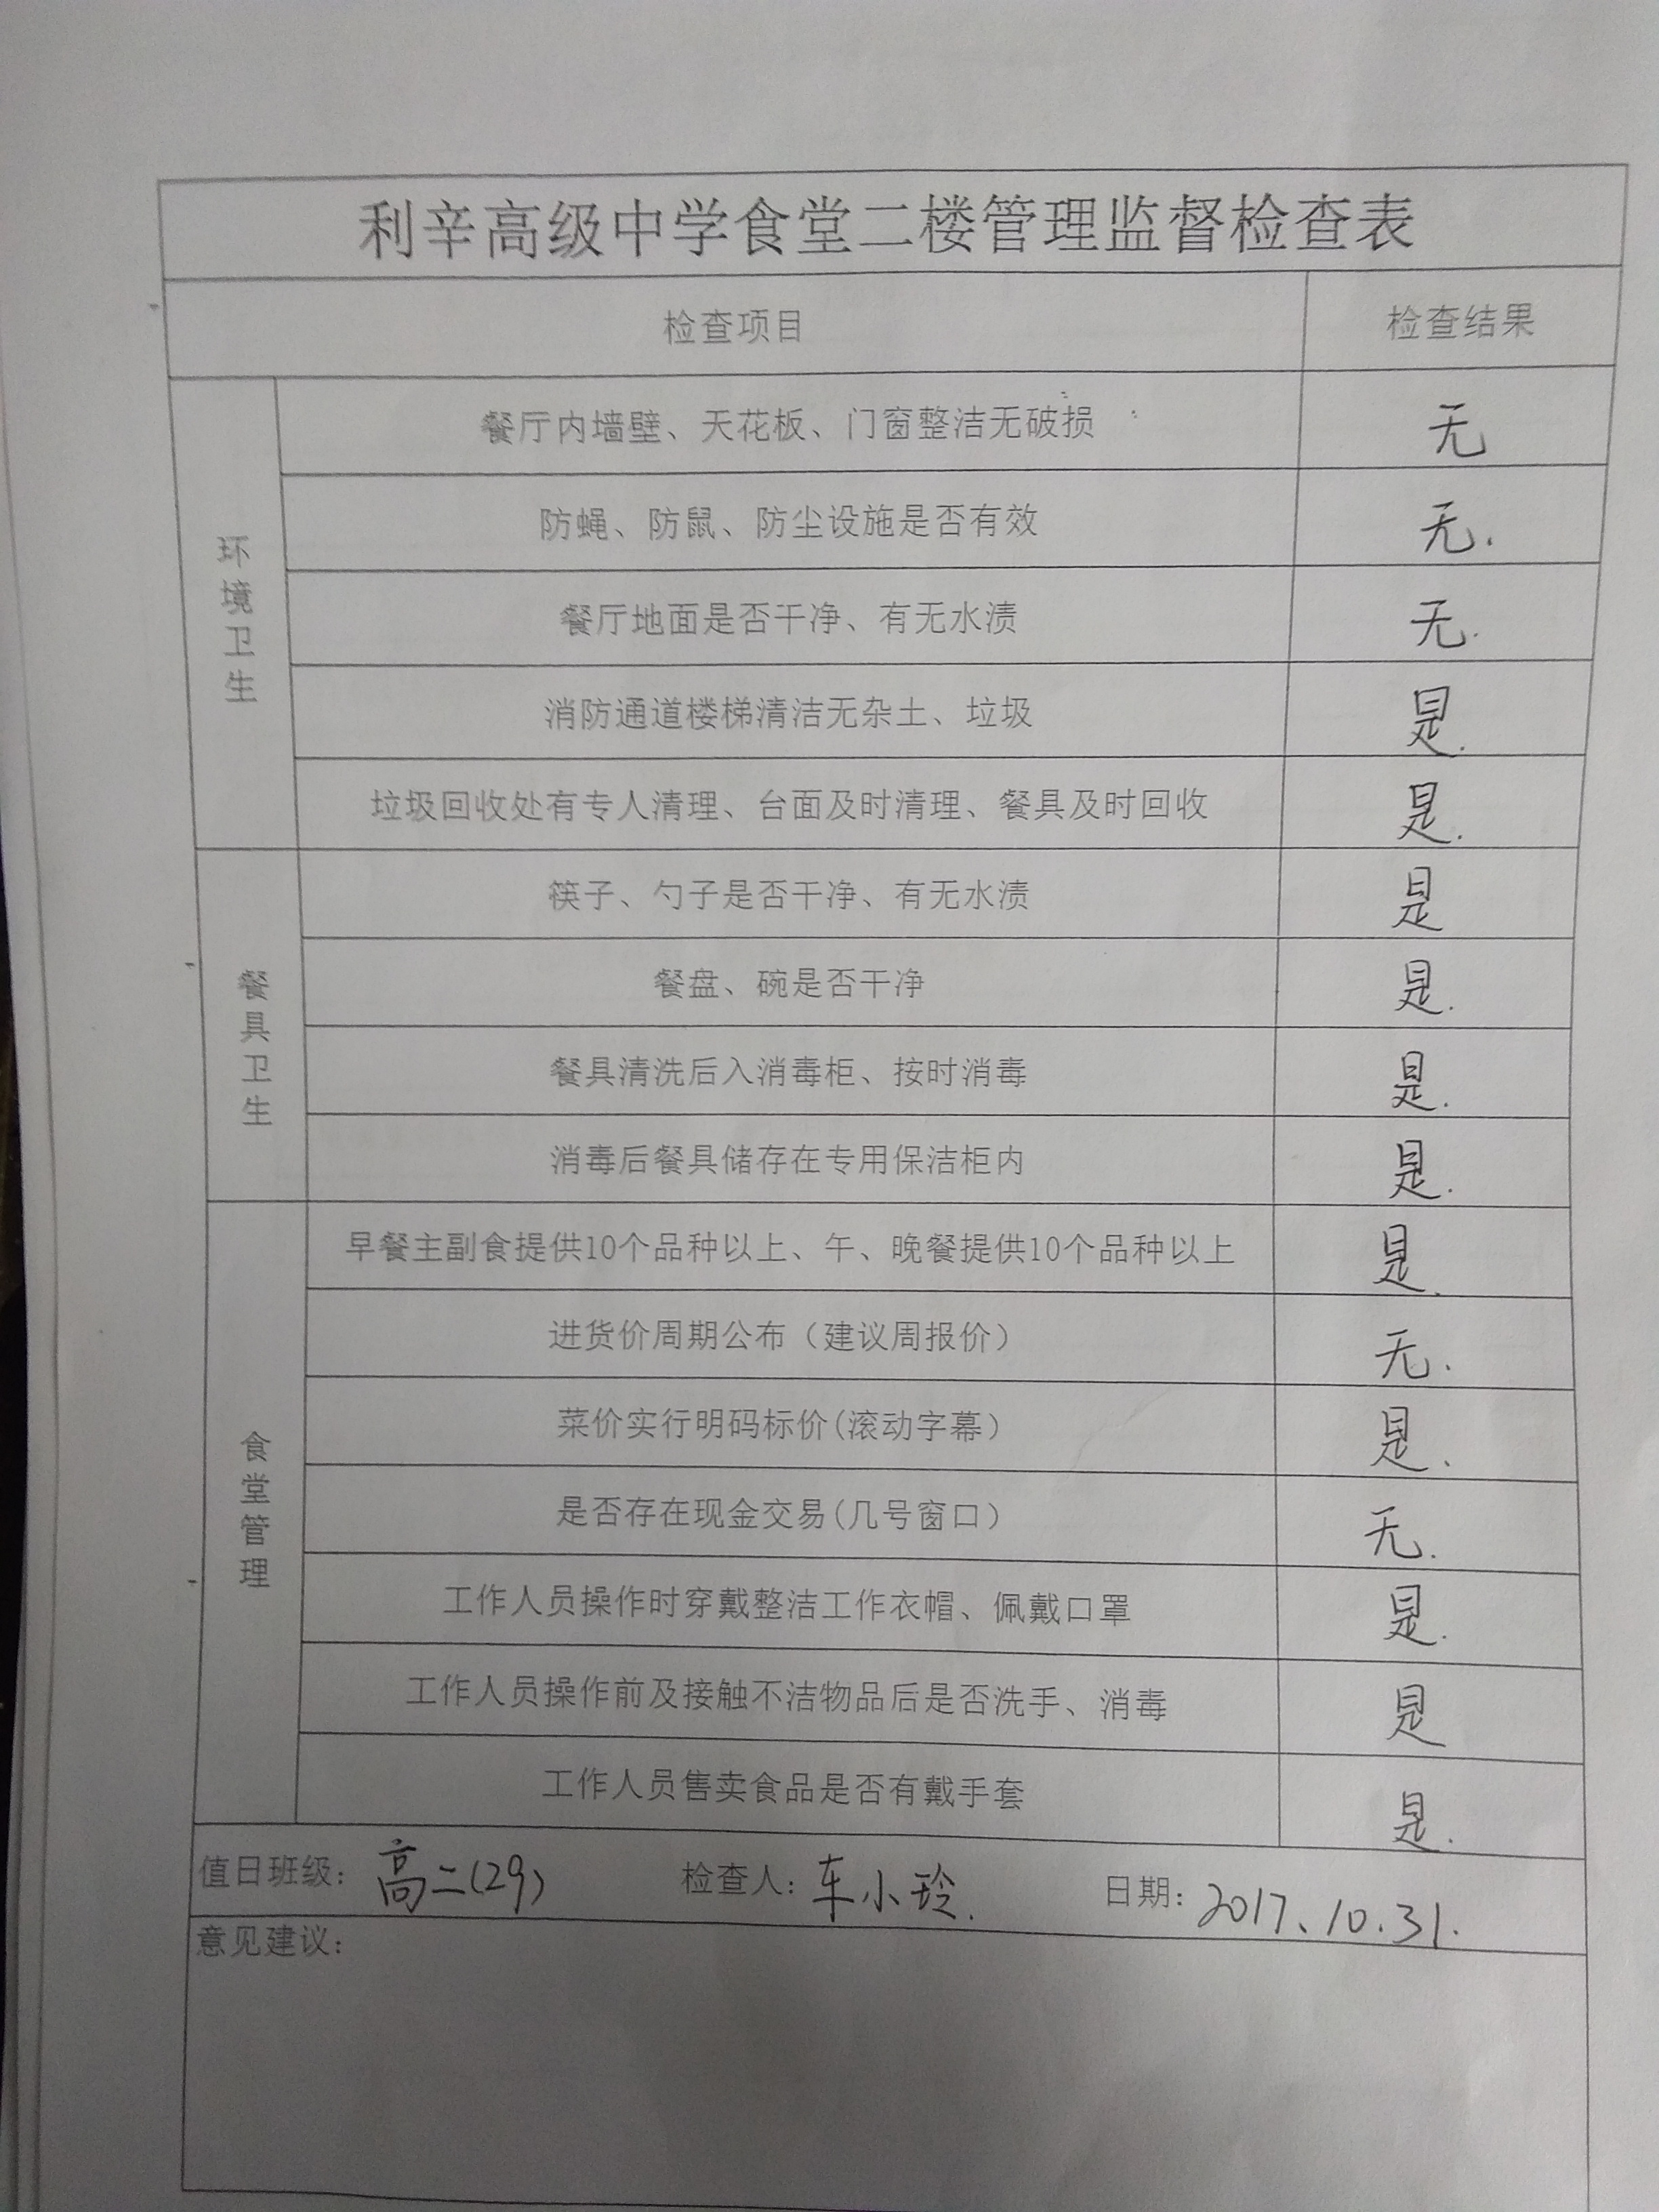 利辛高级中学食堂二楼管理监督检查表
检查项目 检查结果
环境卫生
餐厅内墙壁、天花板、门窗整洁无破损 无
防蝇、防鼠、防尘设施是否有效 无.
餐厅地面是否干净、有无水渍 无.
消防通道楼梯清洁无杂土、垃圾 是.
垃圾回收处有专人清理、台面及时清理、餐具及时回收 是.
餐具卫生
筷子、勺子是否干净、有无水渍 是
餐盘、碗是否干净 是.
餐具清洗后入消毒柜、按时消毒 是.
消毒后餐具储存在专用保洁柜内 是.
食堂管理
早餐主副食提供10个品种以上、午、晚餐提供10个品种以上 是.
进货价周期公布（建议周报价） 无.
菜价实行明码标价(滚动字幕） 是.
是否存在现金交易(几号窗口） 无.
工作人员操作时穿戴整洁工作衣帽、佩戴口罩 是.
工作人员操作前及接触不洁物品后是否洗手、消毒 是
工作人员售卖食品是否有戴手套 是.
值日班级：高二(29) 检查人：车小玲. 日期：2017、10.31.
意见建议：